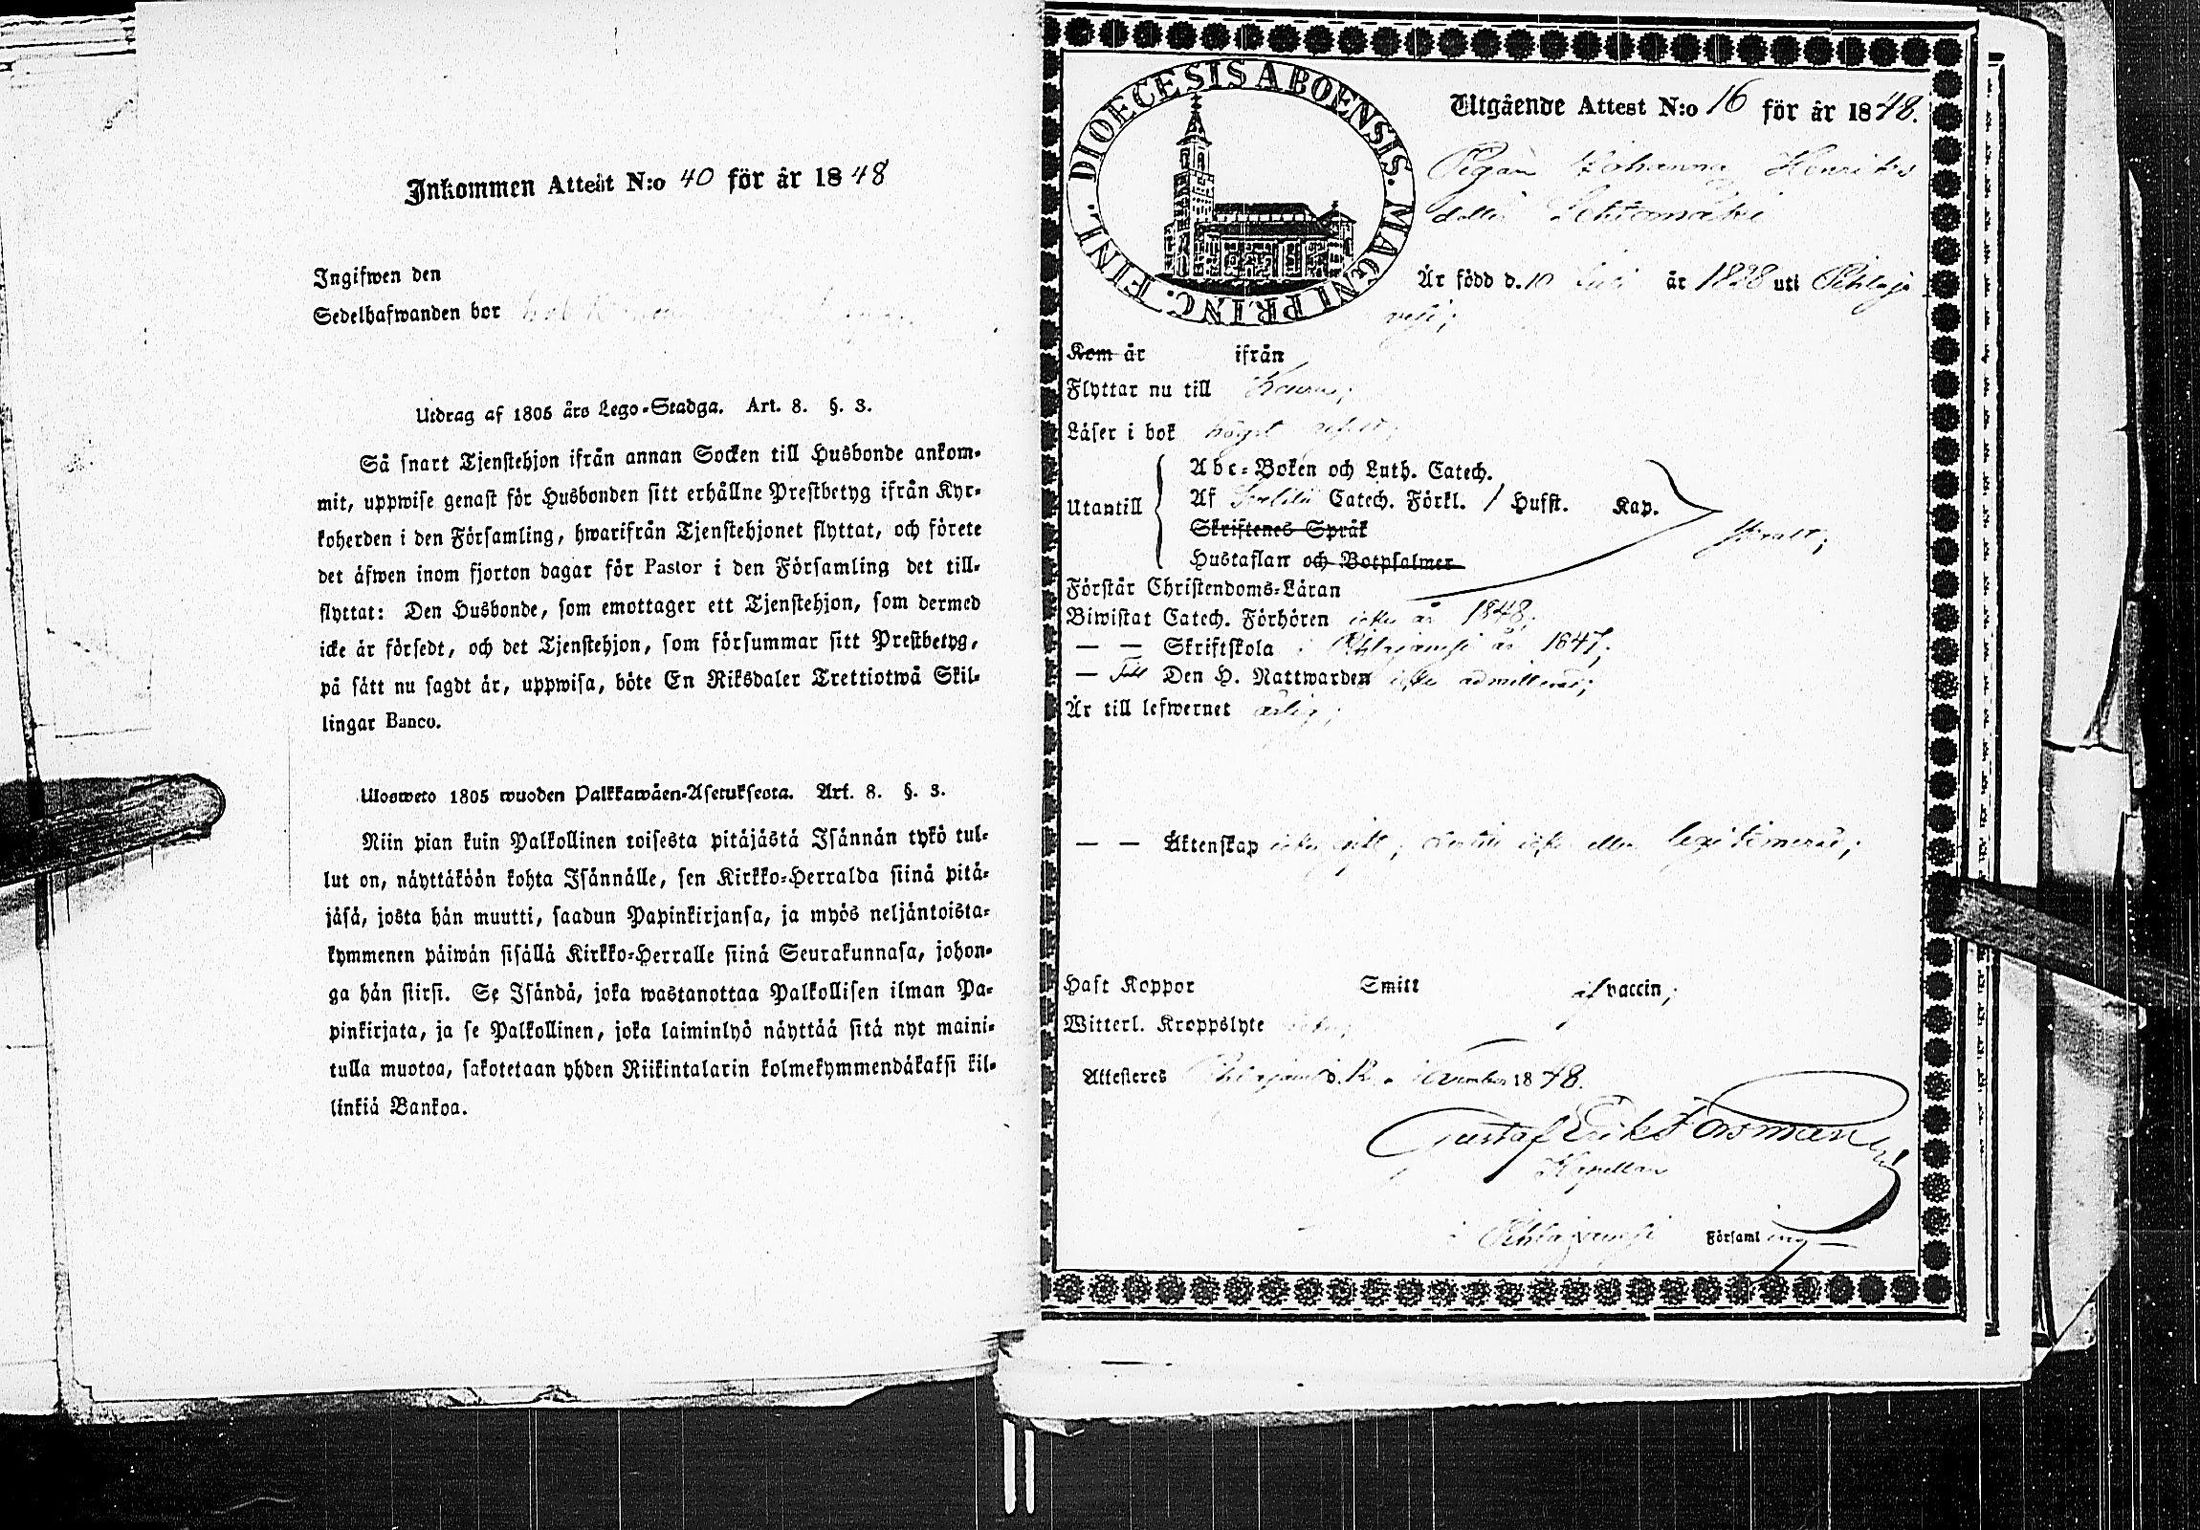 Inkommen Attest N:o 40 för år 1848
Ingifwen den
Sedelhafwanden bor
Utdrag af 1805 års Lego-Stadga. Art. 8. §. 3.
Så snart Tjenstehjon ifrån annan Socken till Husbonde ankom-
mit, uppwise genast för Husbonden sitt erhållne Prestbetyg ifrån Kyr-
koherden i den Församling, hwarifrån Tjenstehjonet flyttat, och förete
det äfwen inom fjorton dagar för Pastor i den Församling det till-
flyttat: Den Husbonde, som emottager ett Tjenstehjon, som dermed
icke är försedt, och det Tjenstehjon, som försummar sitt Prestbetyg,
på sätt nu sagdt är, uppwisa, böte En Riksdaler Trettiotwå Skil-
lingar Banco.
Ulosweto 1805 wuoden Palkkawäen-Asetuksesta. Art. 8. §. 3.
Niin pian kuin Palkollinen toisesta pitäjästä Isännän tykö tul-
lut on, näyttäköön kohta Isännälle, sen Kirkko-Herralda siinä pitä-
jäsä, josta hän muutti, saadun Papinkirjansa, ja myös neljäntoista-
kymmenen päiwän sisällä Kirkko-Herralle siinä Seurakunnasa, johon-
ga hän siirsi. Se Isändä, joka wastanottaa Palkollisen ilman Pa-
pinkirjata, ja se Palkollinen, joka laiminlyö näyttää sitä nyt maini-
tulla muotoa, sakotetaan yhden Riikintalarin kolmekymmendäkaksi kil-
linkiä Bankoa.
DIOECESIS ABOENSIS. MAGNI PRINC. FINL.
Utgående Attest N:o 16 för år 1848.
Pigan Johanna Henriks
dotter Lehtomäki
Är född d. 10 Juli år 1828 uti Pihlaja
vesi;
Kom år ifrån
Flyttar nu till Keuru;
Läser i bok högst
Utantill
Abc-Boken och Luth. Catech.
Af Catech. Förkl. / Husst. Kap.
Skriftenes Språk
Hustaflan och Botpsalmer
Förstår Christendoms-Läran
Biwistat Catech. Förhören år 1848;
— — Skriftskola i Pihlajavesi år 1847;
— Till Den H. Nattwarden icke admitterad;
Är till lefwernet ärlig;
— — Äktenskap icke eller legitimerad;
Haft Koppor Smitt af vaccin;
Witterl. Kroppslyte
Attesteres Pihlajavesi d. November 1848.
Gustaf Erik Forsman
Kapellan
i Pihlajavesi Församling